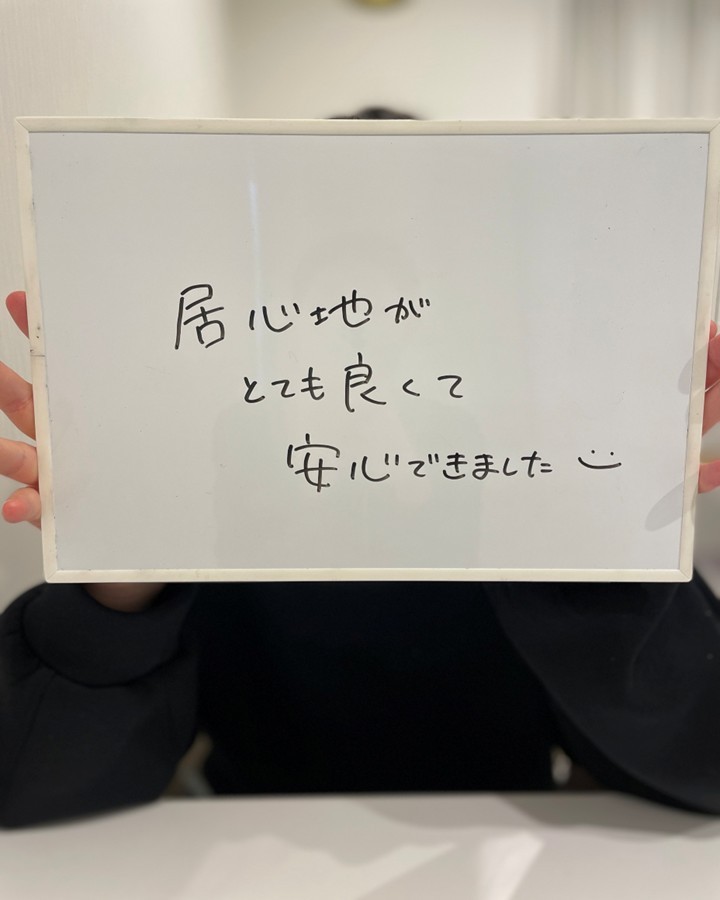 居心地が
とても良くて
安心できました